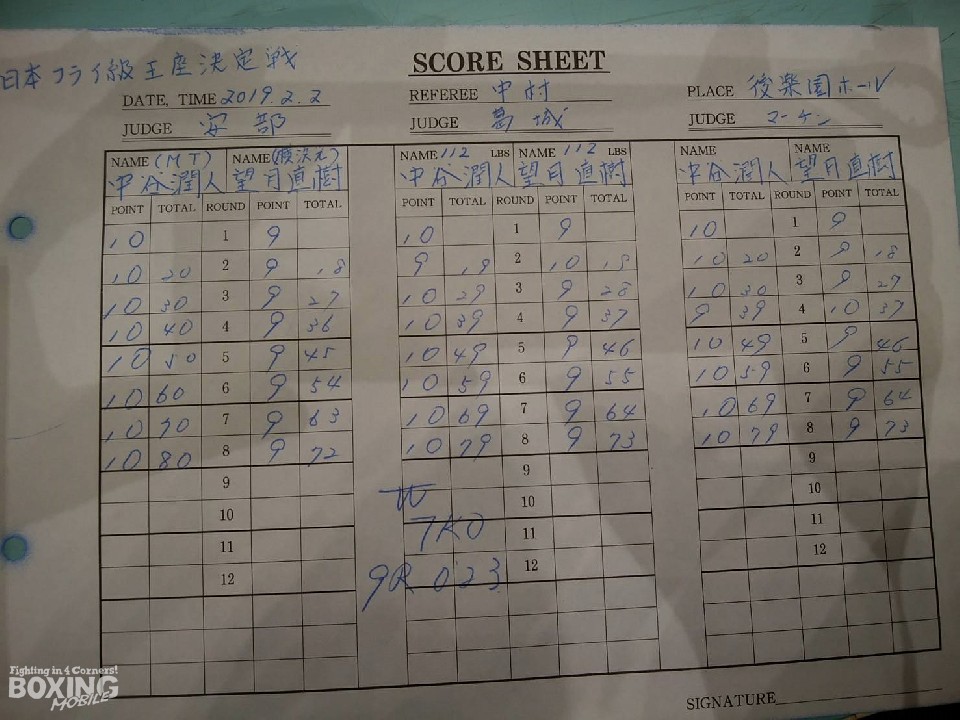 日本フライ級王座決定戦
SCORE SHEET
DATE, TIME 2019.2.2 REFEREE 中村 PLACE 後楽園ホール
JUDGE 安部 JUDGE 葛城 JUDGE マーチン
NAME (MT) NAME NAME 112 LBS NAME 112 LBS NAME NAME
中谷潤人 望月直樹 中谷潤人 望月直樹 中谷潤人 望月直樹
POINT TOTAL ROUND POINT TOTAL POINT TOTAL ROUND POINT TOTAL POINT TOTAL ROUND POINT TOTAL
10 1 9 10 1 9 10 1 9
10 20 2 9 18 9 19 2 10 19 10 20 2 9 18
10 30 3 9 27 10 29 3 9 28 10 30 3 9 27
10 40 4 9 36 10 39 4 9 37 9 39 4 10 37
10 50 5 9 45 10 49 5 9 46 10 49 5 9 46
10 60 6 9 54 10 59 6 9 55 10 59 6 9 55
10 70 7 9 63 10 69 7 9 64 10 69 7 9 64
10 80 8 9 72 10 79 8 9 73 10 79 8 9 73
9 9 9
10 W 10 10
11 TKO 11 11
12 9R 0'23 12 12
SIGNATURE
Fighting in 4 Corners!
BOXING
MOBILE